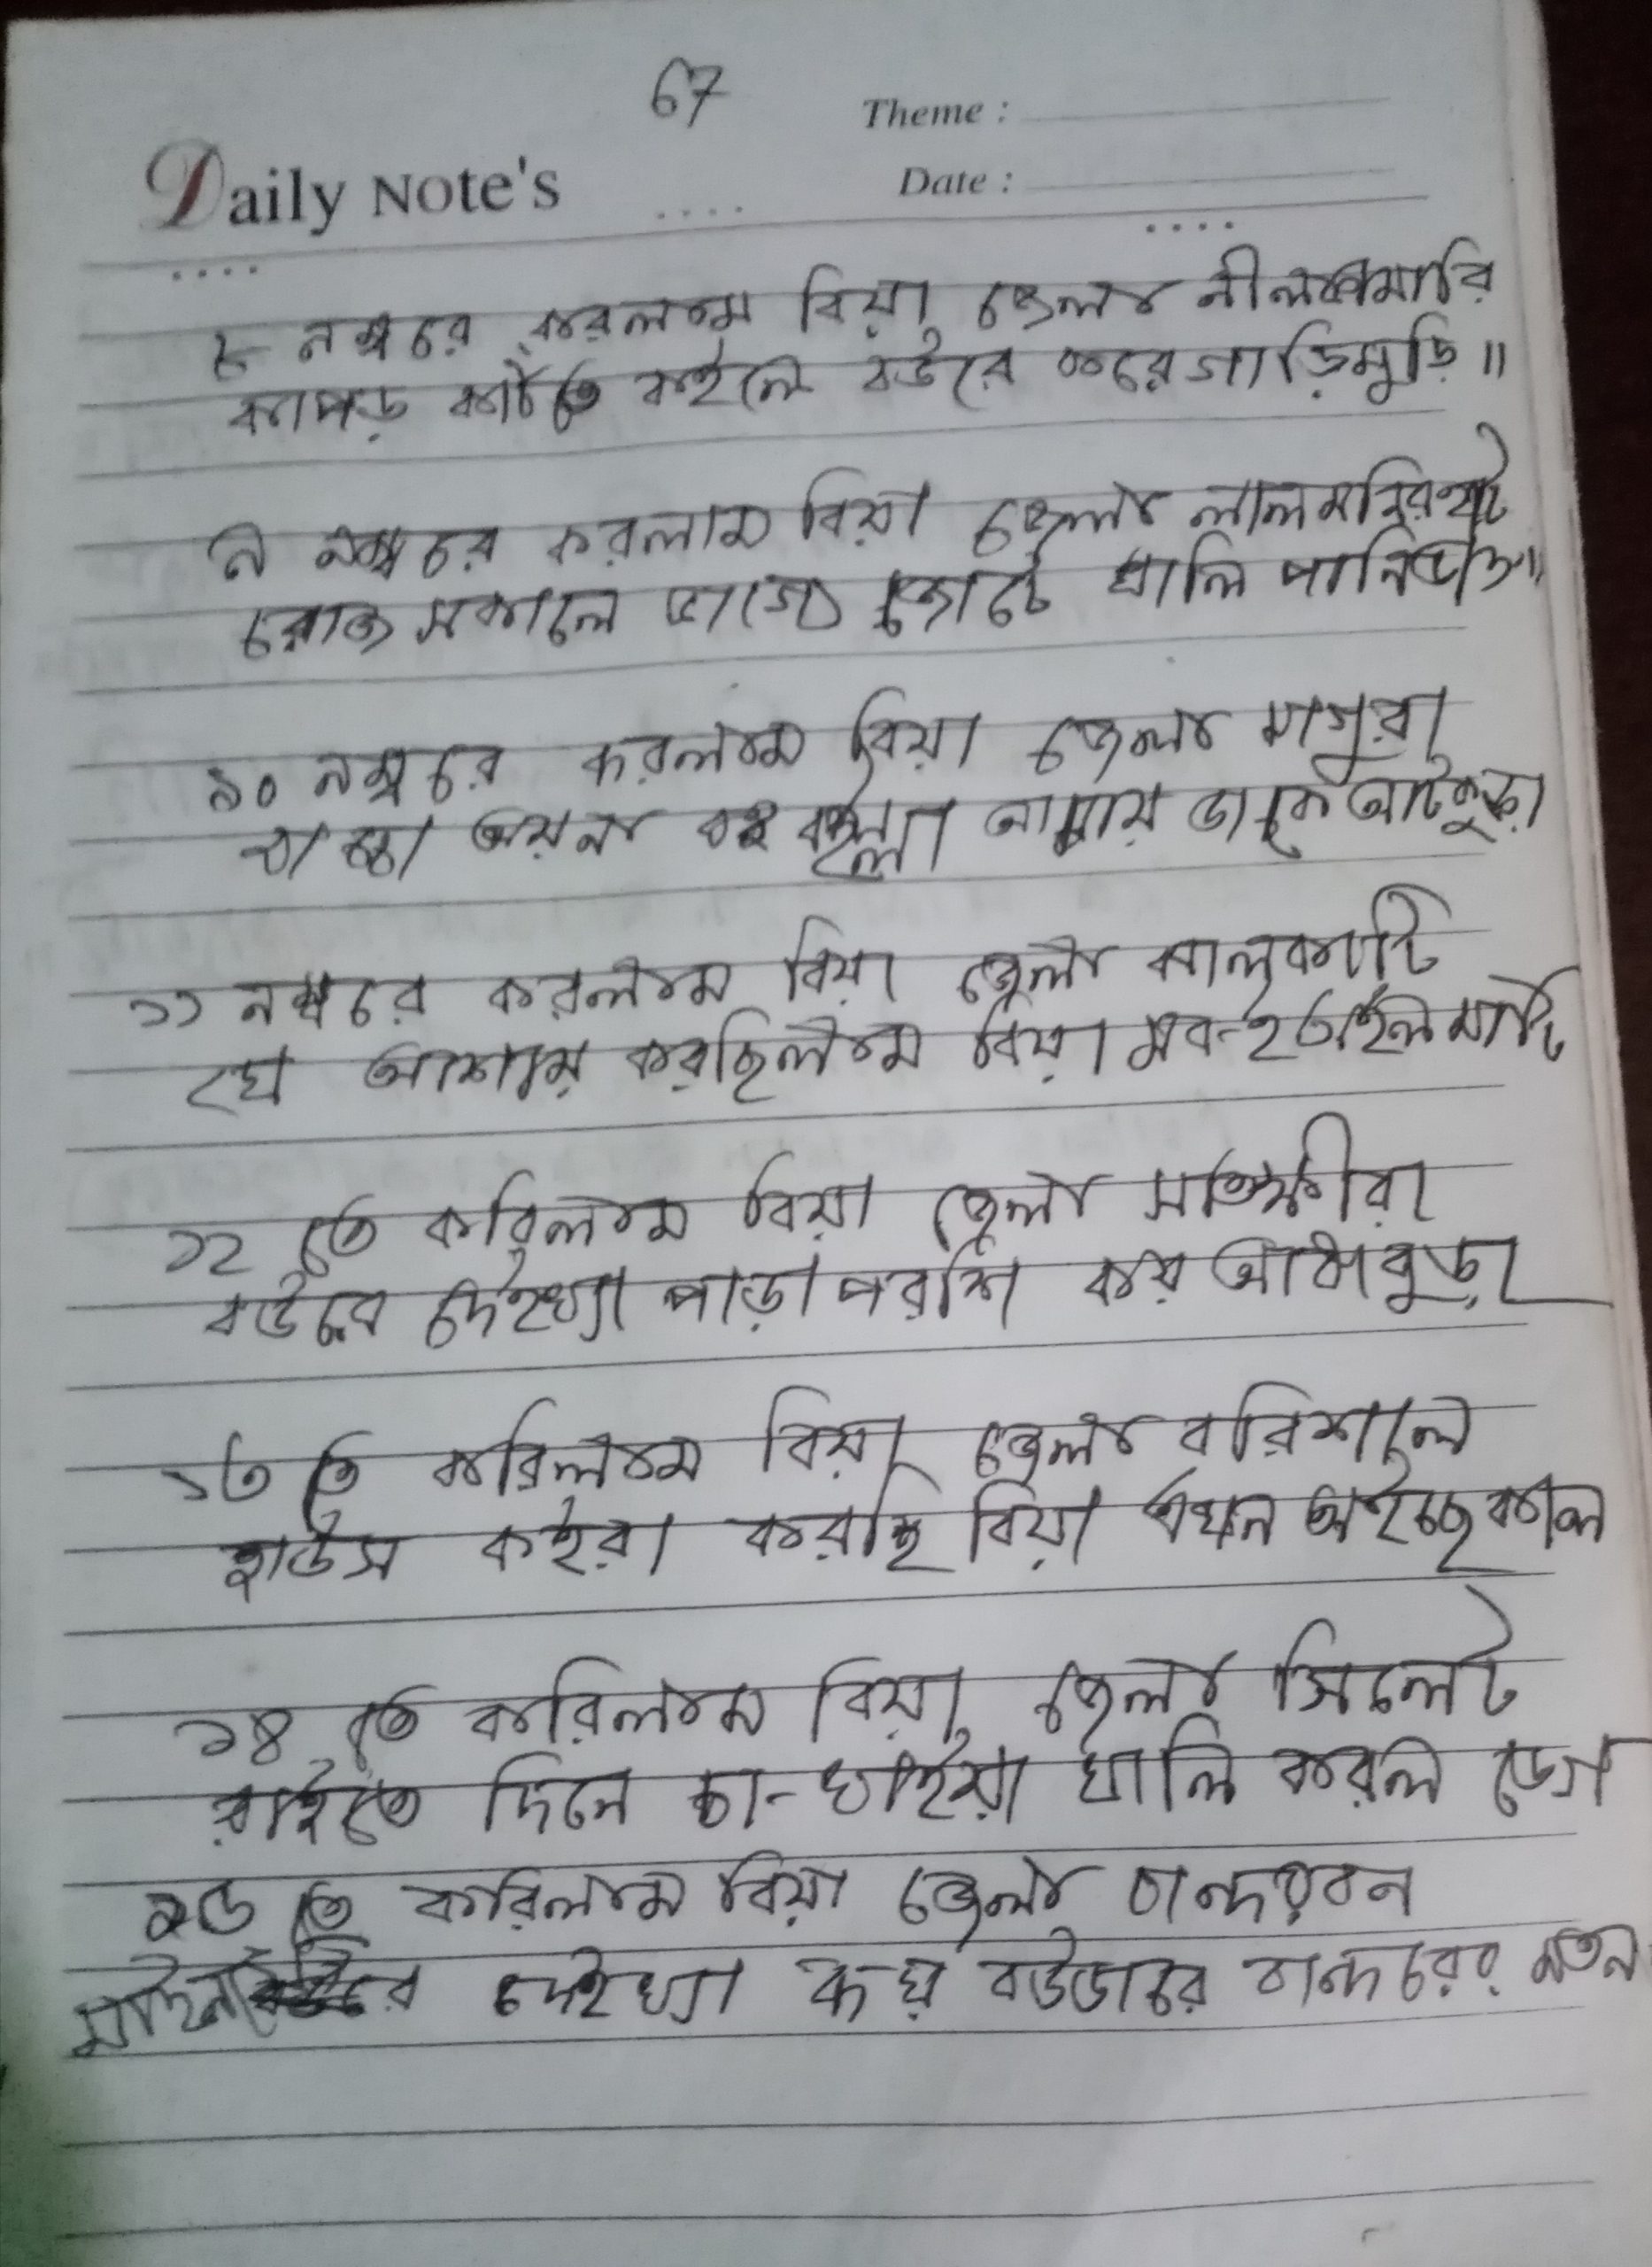 67
Theme :
Daily Note's
Date :
৮ নম্বরে করলাম বিয়া জেলা নীলফামারি
কাপড় কাঁচতে কইলে বউরে করে গাড়িমুড়ি॥
৯ নম্বরে করলাম বিয়া জেলা লালমনিরহাট
রোজ সকালে ভাগ্যে জোটে খালি পানিভাত॥
১০ নম্বরে করলাম বিয়া জেলা মাগুরা
বাচ্চা অয়না বই কইল্যা আমায় ডাকে আটকুড়া
১১ নম্বরে করলাম বিয়া জেলা ঝালকাটি
যে আশায় করছিলাম বিয়া সব-ই অইল মাটি
১২ তে করিলাম বিয়া জেলা সাতক্ষীরা
বউরে দেইখ্যা পাড়া পরশি কয় আমি বুড়া
১৩ তে করিলাম বিয়া জেলা বরিশালে
হাউস কইরা করছি বিয়া এখন অইছে কাল
১৪ তে করিলাম বিয়া জেলা সিলেট
রাইতে দিনে চা-খাইয়া খালি করল ডেগ
১৫ তে করিলাম বিয়া জেলা বান্দরবন
দেইখ্যা কয় বউডারে বান্দরের মতন